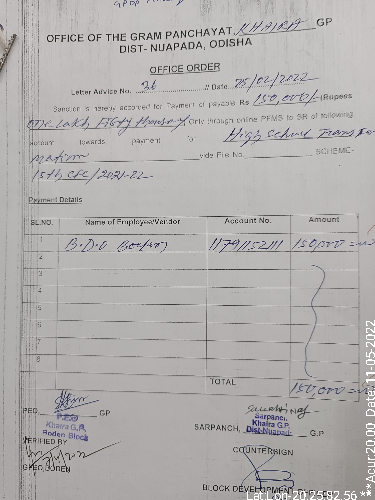 OFFICE OF THE GRAM PANCHAYAT, KHAIRA GP
DIST- NUAPADA, ODISHA
OFFICE ORDER
Letter Advice No. 26 // Date 25/02/2022
Sanction is hereby accorded for Payment of payable Rs 150,000/- (Rupees
One Lakh Fifty Thousand Only through online PFMS to SB of following
account towards payment for High School Transfor
mation vide File No. SCHEME-
15th CFC/2021-22
Payment Details
SL.NO. Name of Employee/Vendor Account No. Amount
1 B.D.O 11791152111 150,000=00
2
3
4
5
6
7
8
TOTAL 150,000=00
PEO GP
P.E.O
Khaira G.P.
Boden Block
Sarpanch
Khaira G.P.
Dist-Nuapada
SARPANCH, G.P
VERIFIED BY
GPEO, BODEN
COUNTERSIGN
BLOCK DEVELOPMENT
Lat Lon-20.25 82.56 ***Acur:20.00 Date: 11-05-2022